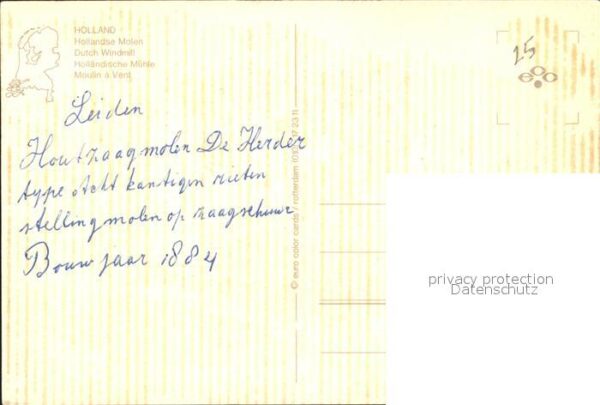 HOLLAND
Hollandse Molen
Dutch Windmill
Holländische Mühle
Moulin à Vent
25
Leiden
Houtzaagmolen De Herder
type Acht kantigen rieten
stellingmolen op zaagschuur
Bouw jaar 1884
© euro color cards / rotterdam
privacy protection
Datenschutz